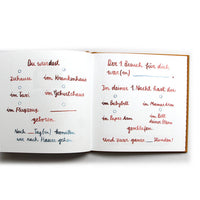 Du wurdest
Zuhause im Krankenhaus
im Taxi im Geburtshaus
im Flugzeug
geboren
Nach Tag(en) konnten
wir nach Hause gehen
Der 1. Besuch für dich
war(en)
In deiner 1. Nacht hast du
im Babybett in Mamas Arm
in Papas Arm im Bett deiner Eltern
geschlafen.
Und zwar ganze Stunden!